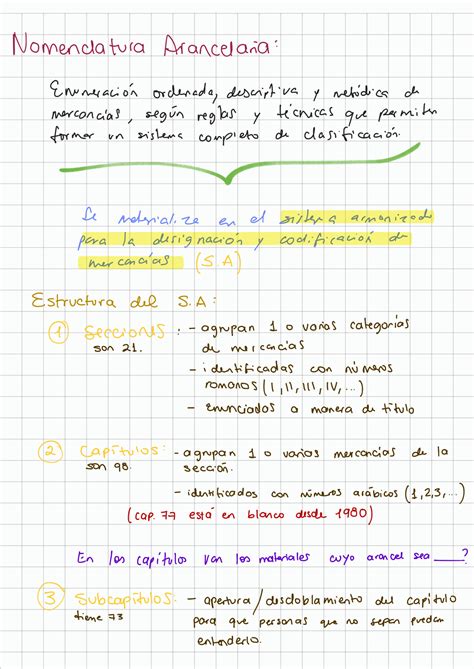 Nomenclatura Arancelaria:
Enumeración ordenada, descriptiva y metódica de
mercancías, según reglas y técnicas que permiten
formar un sistema completo de clasificación.
Se materializa en el sistema armonizado
para la designación y codificación de
mercancías (S.A)
Estructura del S.A:
1 Secciones: - agrupan 1 o varias categorías
son 21. de mercancías
- identificadas con números
romanos (I, II, III, IV, ...)
- enunciados a manera de título
2 Capítulos: - agrupan 1 o varias mercancías de la
son 98. sección.
- identificados con números arábicos (1,2,3,...)
(cap. 77 está en blanco desde 1980)
En los capítulos van los materiales cuyo arancel sea ____?
3 Subcapítulos: - apertura / desdoblamiento del capítulo
tiene 73 para que personas que no sepan puedan
entenderlo.